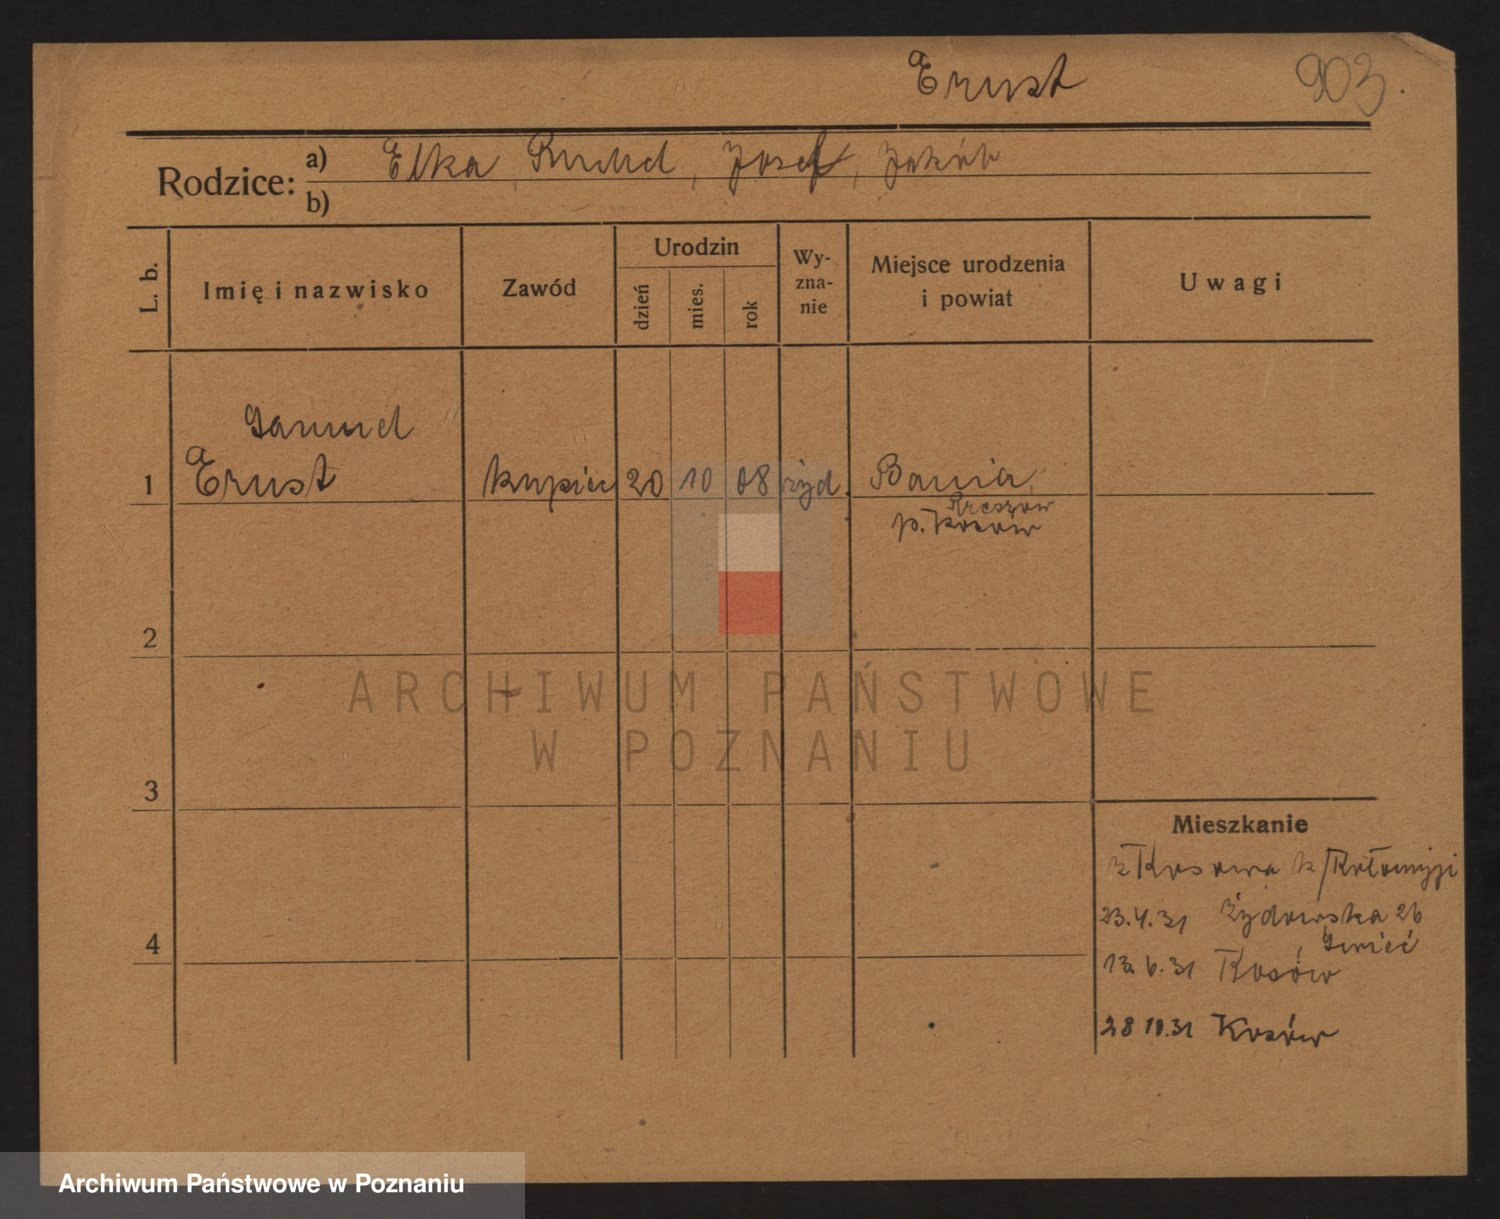 Ernst
903
Rodzice:
a) Elka, Josef, Jakób
b)
L. b.
Imię i nazwisko
Zawód
Urodzin
dzień
mies.
rok
Wy-
zna-
nie
Miejsce urodzenia
i powiat
Uwagi
Samuel
1 Ernst kupiec 20 10 08 żyd. Bania
Rzeszów
p. Kosów
2
3
4
Mieszkanie
z Kosowa k/Kołomyji
23.4.31 Żydowska 26
13.6.31 Kosów
28 10.31 Kosów
ARCHIWUM PAŃSTWOWE
W POZNANIU
Archiwum Państwowe w Poznaniu